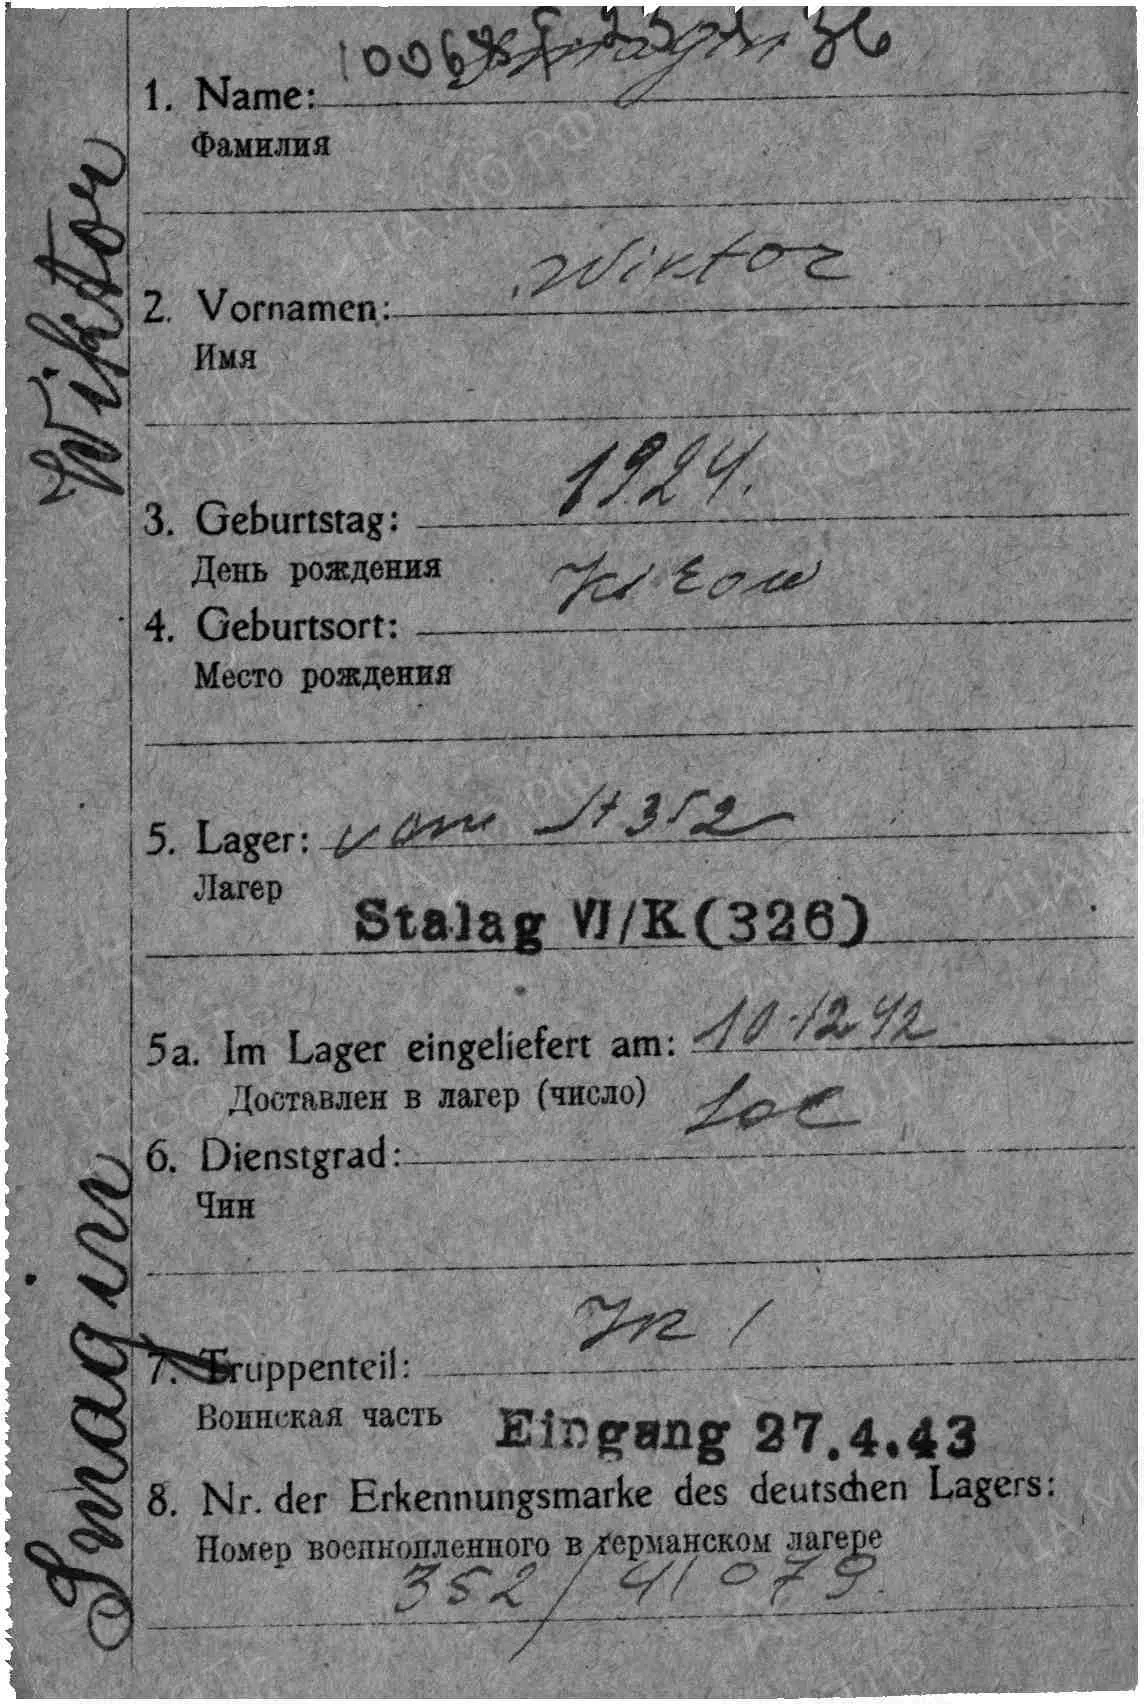 1. Name: Smagin
Фамилия
2. Vornamen: Wiktor
Имя
3. Geburtstag: 1924.
День рождения
4. Geburtsort: Kirow
Место рождения
5. Lager: vom St 352
Лагер
Stalag VI/K (326)
5a. Im Lager eingeliefert am: 10.12 42
Доставлен в лагер (число)
6. Dienstgrad: Sol
Чин
7. Truppenteil: IR 1
Воинская часть
Eingang 27.4.43
8. Nr. der Erkennungsmarke des deutschen Lagers:
Номер военнопленного в германском лагере
352/41079
Smagin Wiktor